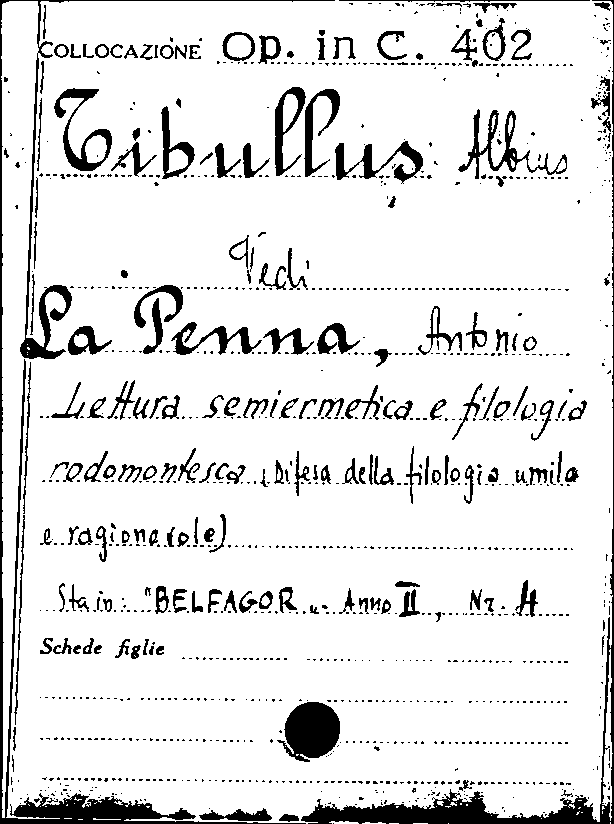 COLLOCAZIONE Op. in C. 402
Tibullus Albius
Vedi
La Penna, Antonio
Lettura semiermetica e filologia
rodomontesca (Difesa della filologia umile
e ragionevole)
Sta in: "BELFAGOR". Anno II, Nr. 4
Schede figlie